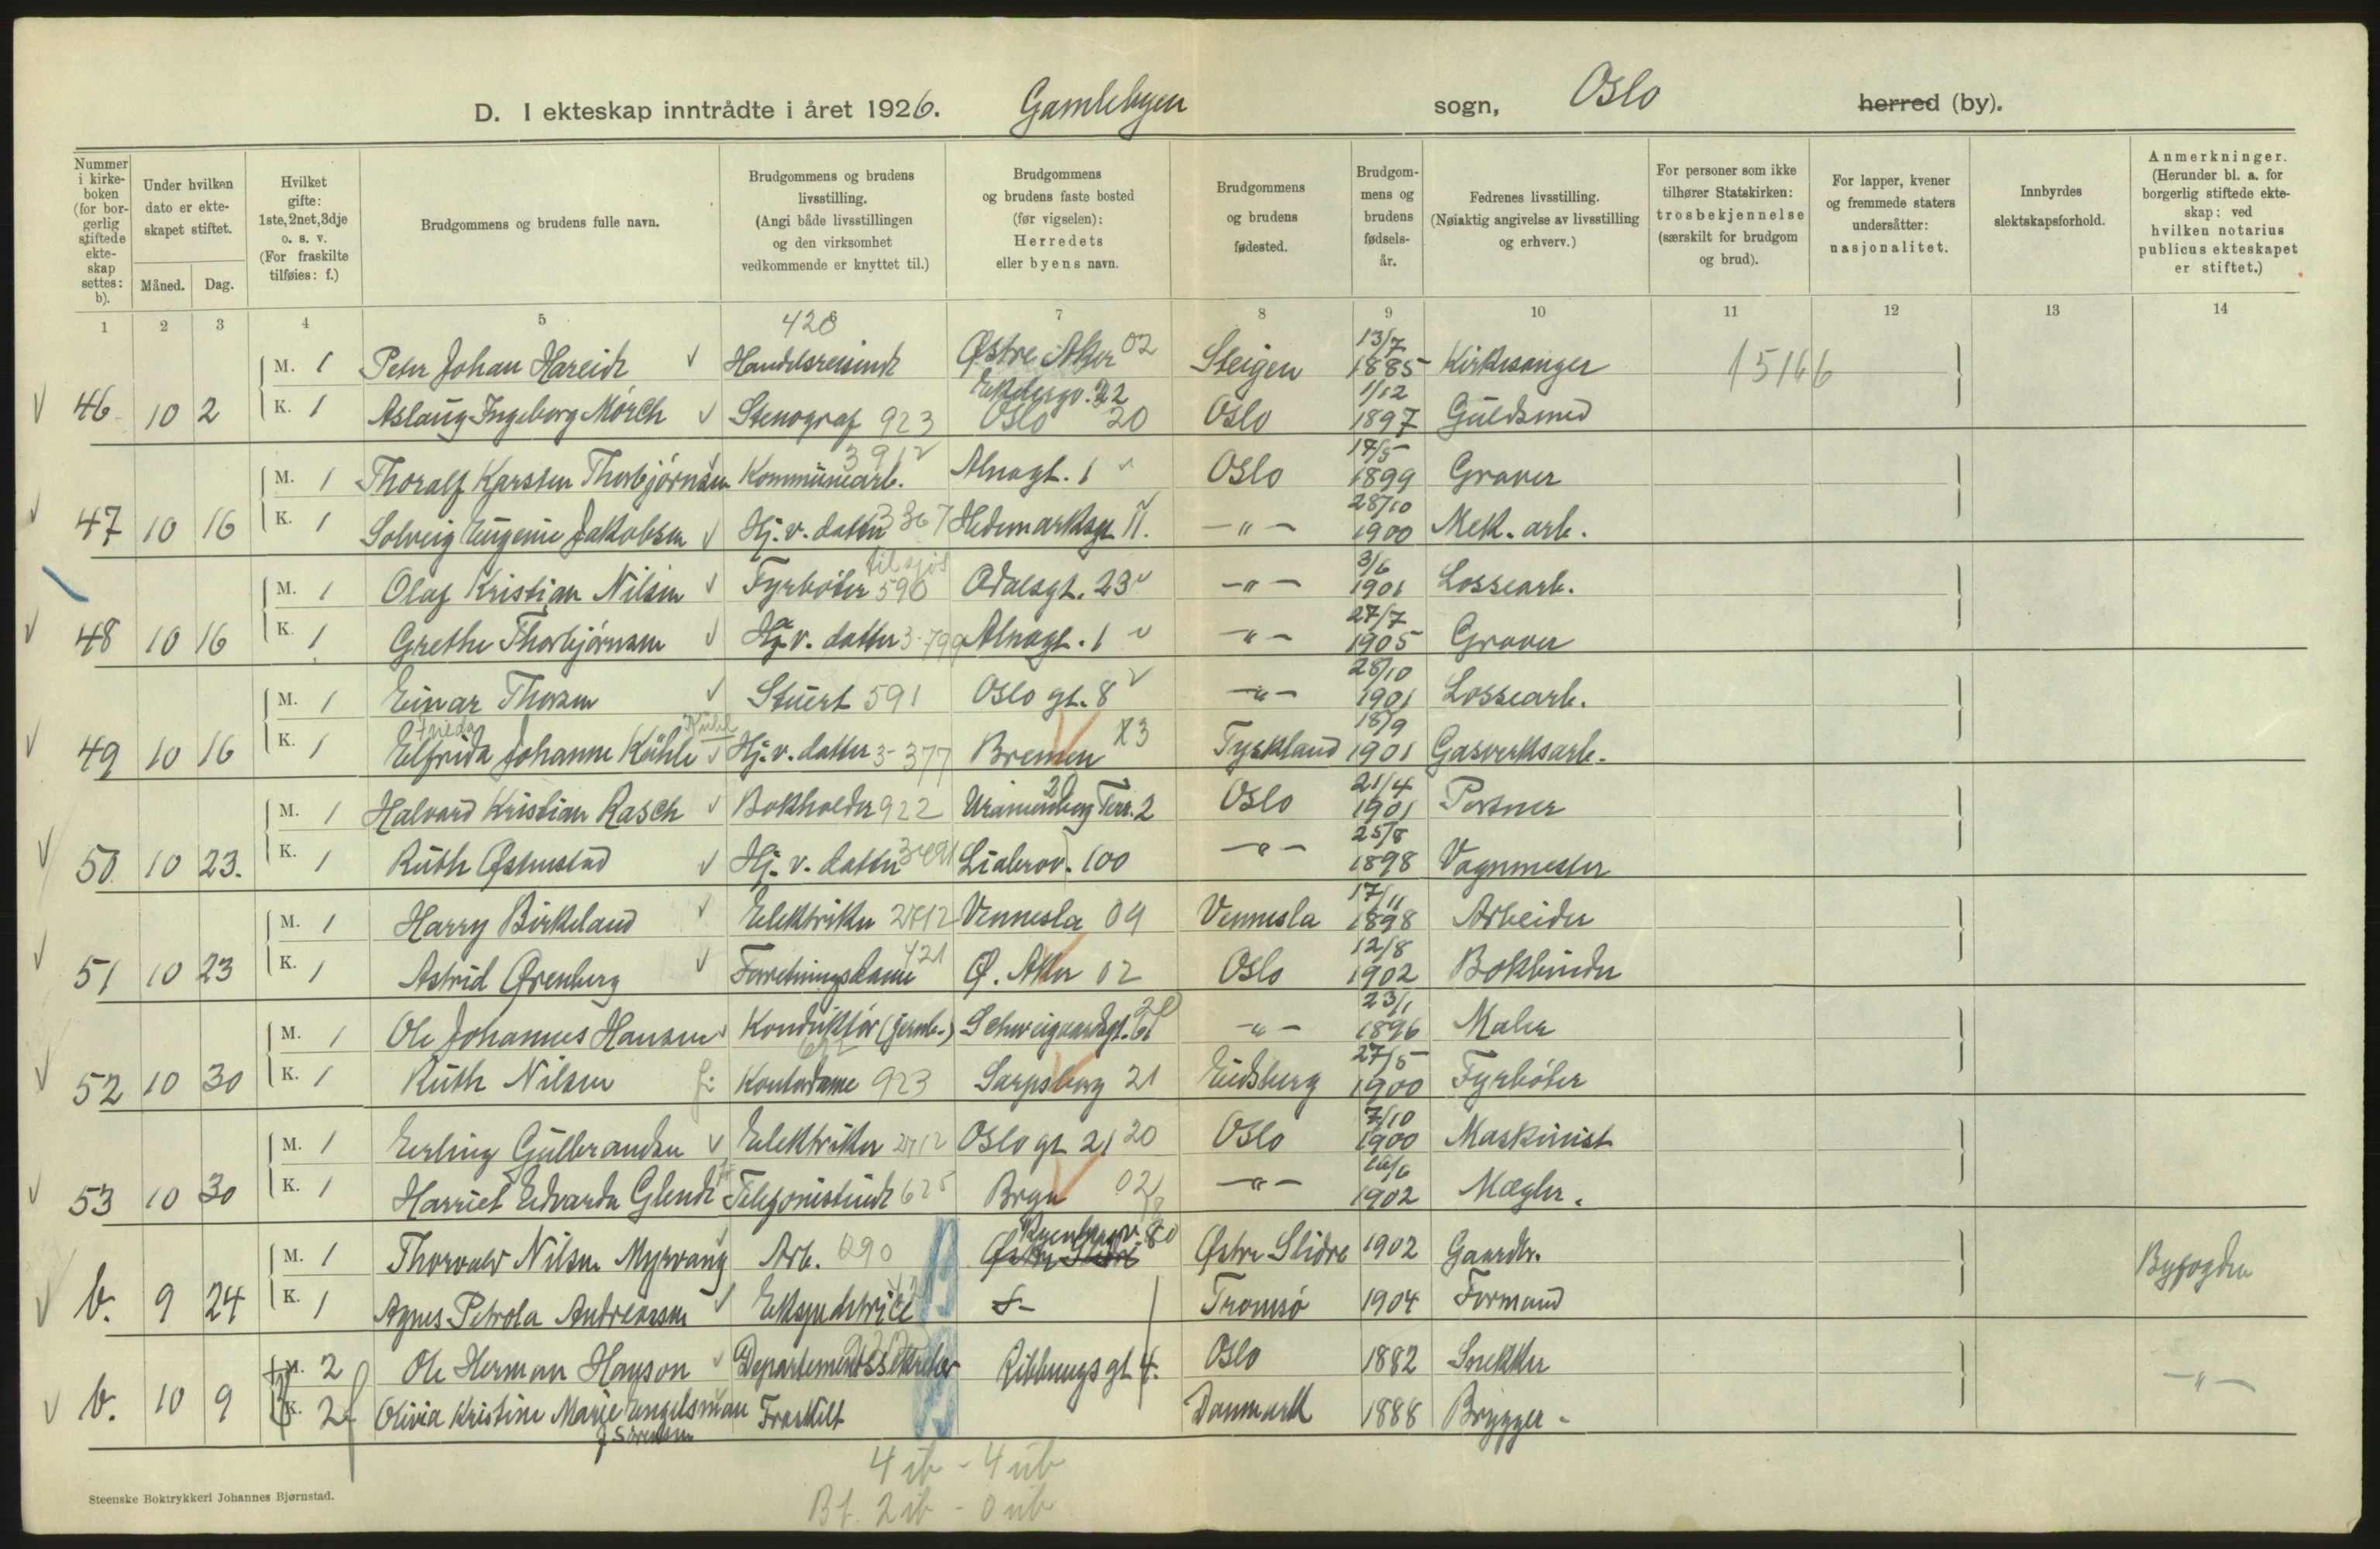 D. I ekteskap inntrådte i året 1926. Gamlebyen sogn, Oslo herred (by).
Nummer i kirkeboken (for borgerlig stiftede ekteskap settes: b).
Under hvilken dato er ekteskapet stiftet.
Måned. Dag.
Hvilket gifte: 1ste, 2net, 3dje o. s. v. (For fraskilte tilføies: f.)
Brudgommens og brudens fulle navn.
Brudgommens og brudens livsstilling. (Angi både livsstillingen og den virksomhet vedkommende er knyttet til.)
Brudgommens og brudens faste bosted (før vigselen): Herredets eller byens navn.
Brudgommens og brudens fødested.
Brudgommens og brudens fødselsår.
Fedrenes livsstilling. (Nøiaktig angivelse av livsstilling og erhverv.)
For personer som ikke tilhører Statskirken: trosbekjennelse (særskilt for brudgom og brud).
For lapper, kvener og fremmede staters undersåtter: nasjonalitet.
Innbyrdes slektskapsforhold.
Anmerkninger. (Herunder bl. a. for borgerlig stiftede ekteskap: ved hvilken notarius publicus ekteskapet er stiftet.)
1 2 3 4 5 6 7 8 9 10 11 12 13 14
M. 1 Peter Johan Hareide Handelsreisende Østre Aker 02 Steigen 13/7 1885 Kirkesanger 15166
46 10 2 K. 1 Aslaug Ingeborg Mørch Stenograf 923 Ekebergv. 22 Oslo 20 Oslo 1/12 1897 Guldsmed
M. 1 Thoralf Karsten Thorbjørnsen Kommunearb. Alnagt. 1 Oslo 17/5 1899 Graver
47 10 16 K. 1 Solveig Eugenie Jakobsen Hj. v. datter 3 367 Hedemarksgt. 11. -"- 28/10 1900 Mek. arb.
M. 1 Olaf Kristian Nilsen Fyrbøter til sjøs 590 Odalsgt. 23 -"- 3/6 1901 Lossearb.
48 10 16 K. 1 Grethe Thorbjørnsen Hj. v. datter 3-799 Alnagt. 1 -"- 27/7 1905 Graver
M. 1 Einar Thorsen Stuert 591 Oslo gt. 8 -"- 28/10 1901 Lossearb.
49 10 16 K. 1 Elfrida Johanne Kühle Hj. v. datter 3-377 Bremen Tyskland 18/9 1901 Gasverksarb.
M. 1 Halvard Kristian Rasch Bokholder 922 Uranienborg Terr. 2 20 Oslo 21/4 1901 Portner
50 10 23. K. 1 Ruth Østenstad Hj. v. datter Lialerov. 100 -"- 25/8 1898 Vognmester
M. 1 Harry Birkeland Elektriker 2712 Vennesla 09 Vennesla 17/11 1898 Arbeider
51 10 23 K. 1 Astrid Ørenberg Forretningsdame 421 Ø. Aker 02 Oslo 12/8 1902 Bokbinder
M. 1 Ole Johannes Hansen Konduktør (jernb.) Schweigaardsgt. 61 20 -"- 23/1 1896 Maler
52 10 30 K. 1 Ruth Nilsen Kontordame 923 Sarpsborg 21 Eidsberg 27/5 1900 Fyrbøter
M. 1 Erling Gulbrandsen Elektriker 2712 Oslo gt 21 20 Oslo 7/10 1900 Maskinist
53 10 30 K. 1 Harriet Edvarda Glende Telefonistinde 625 Bryn 02 -"- 1902 Mægler.
M. 1 Thorvald Nilsen Myrvang Arb. 090 Ryenbergv. 80 Østre Slidre Østre Slidre 1902 Gaardbr. Byfogden
b. 9 24 K. 1 Agnes Petrola Andreassen Ekspeditrice Tromsø 1904 Formand
M. 2 Ole Herman Hanson Departementssekretær Ribbungs gt 4. Oslo 1882 Snekker -"-
b. 10 9 K. 2 f Olivia Kristine Marie Engelsman f Sørensen Fraskilt Danmark 1888 Brygger
4 ib - 4 ub
Bf. 2 ib - 0 ub
Steenske Boktrykkeri Johannes Bjørnstad.